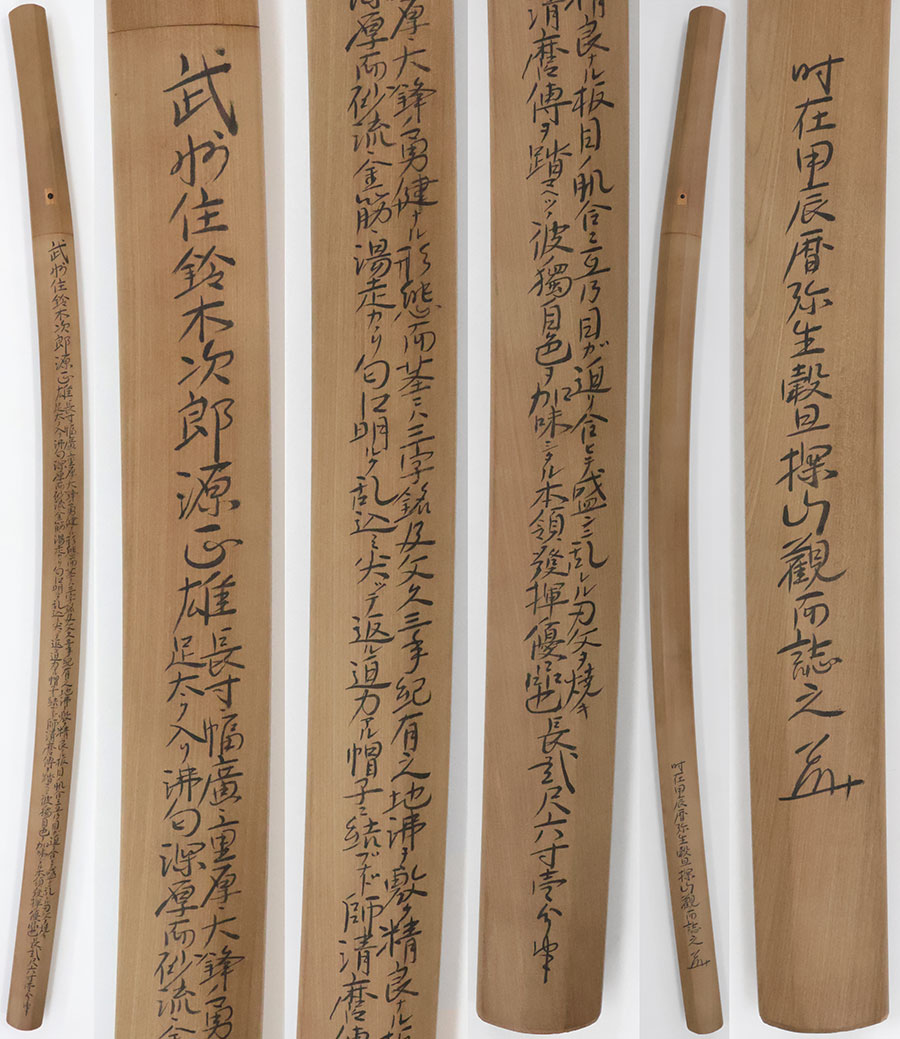 武州住鈴木次郎源正雄
長寸幅廣重厚大鋒ノ勇健ナル形態而茎ニハ三字銘及文久三年紀有之地沸ヲ敷ク精良ナル板目ノ肌合ニ互乃目が迫リ合ヒテ盛ンニ乱レル刃文ヲ焼キ
足太ク入リ沸匂深厚而砂流金筋湯走カカリ匂口明ルク乱込ミ尖ッテ返ル迫力アル帽子ニ結ブナド師清麿傳ヲ踏マヘツツ彼ノ獨自色ヲ加味シタル本領發揮ノ優品也
長貮尺六寸壱分半
时在甲辰暦弥生穀旦探山觀而誌之